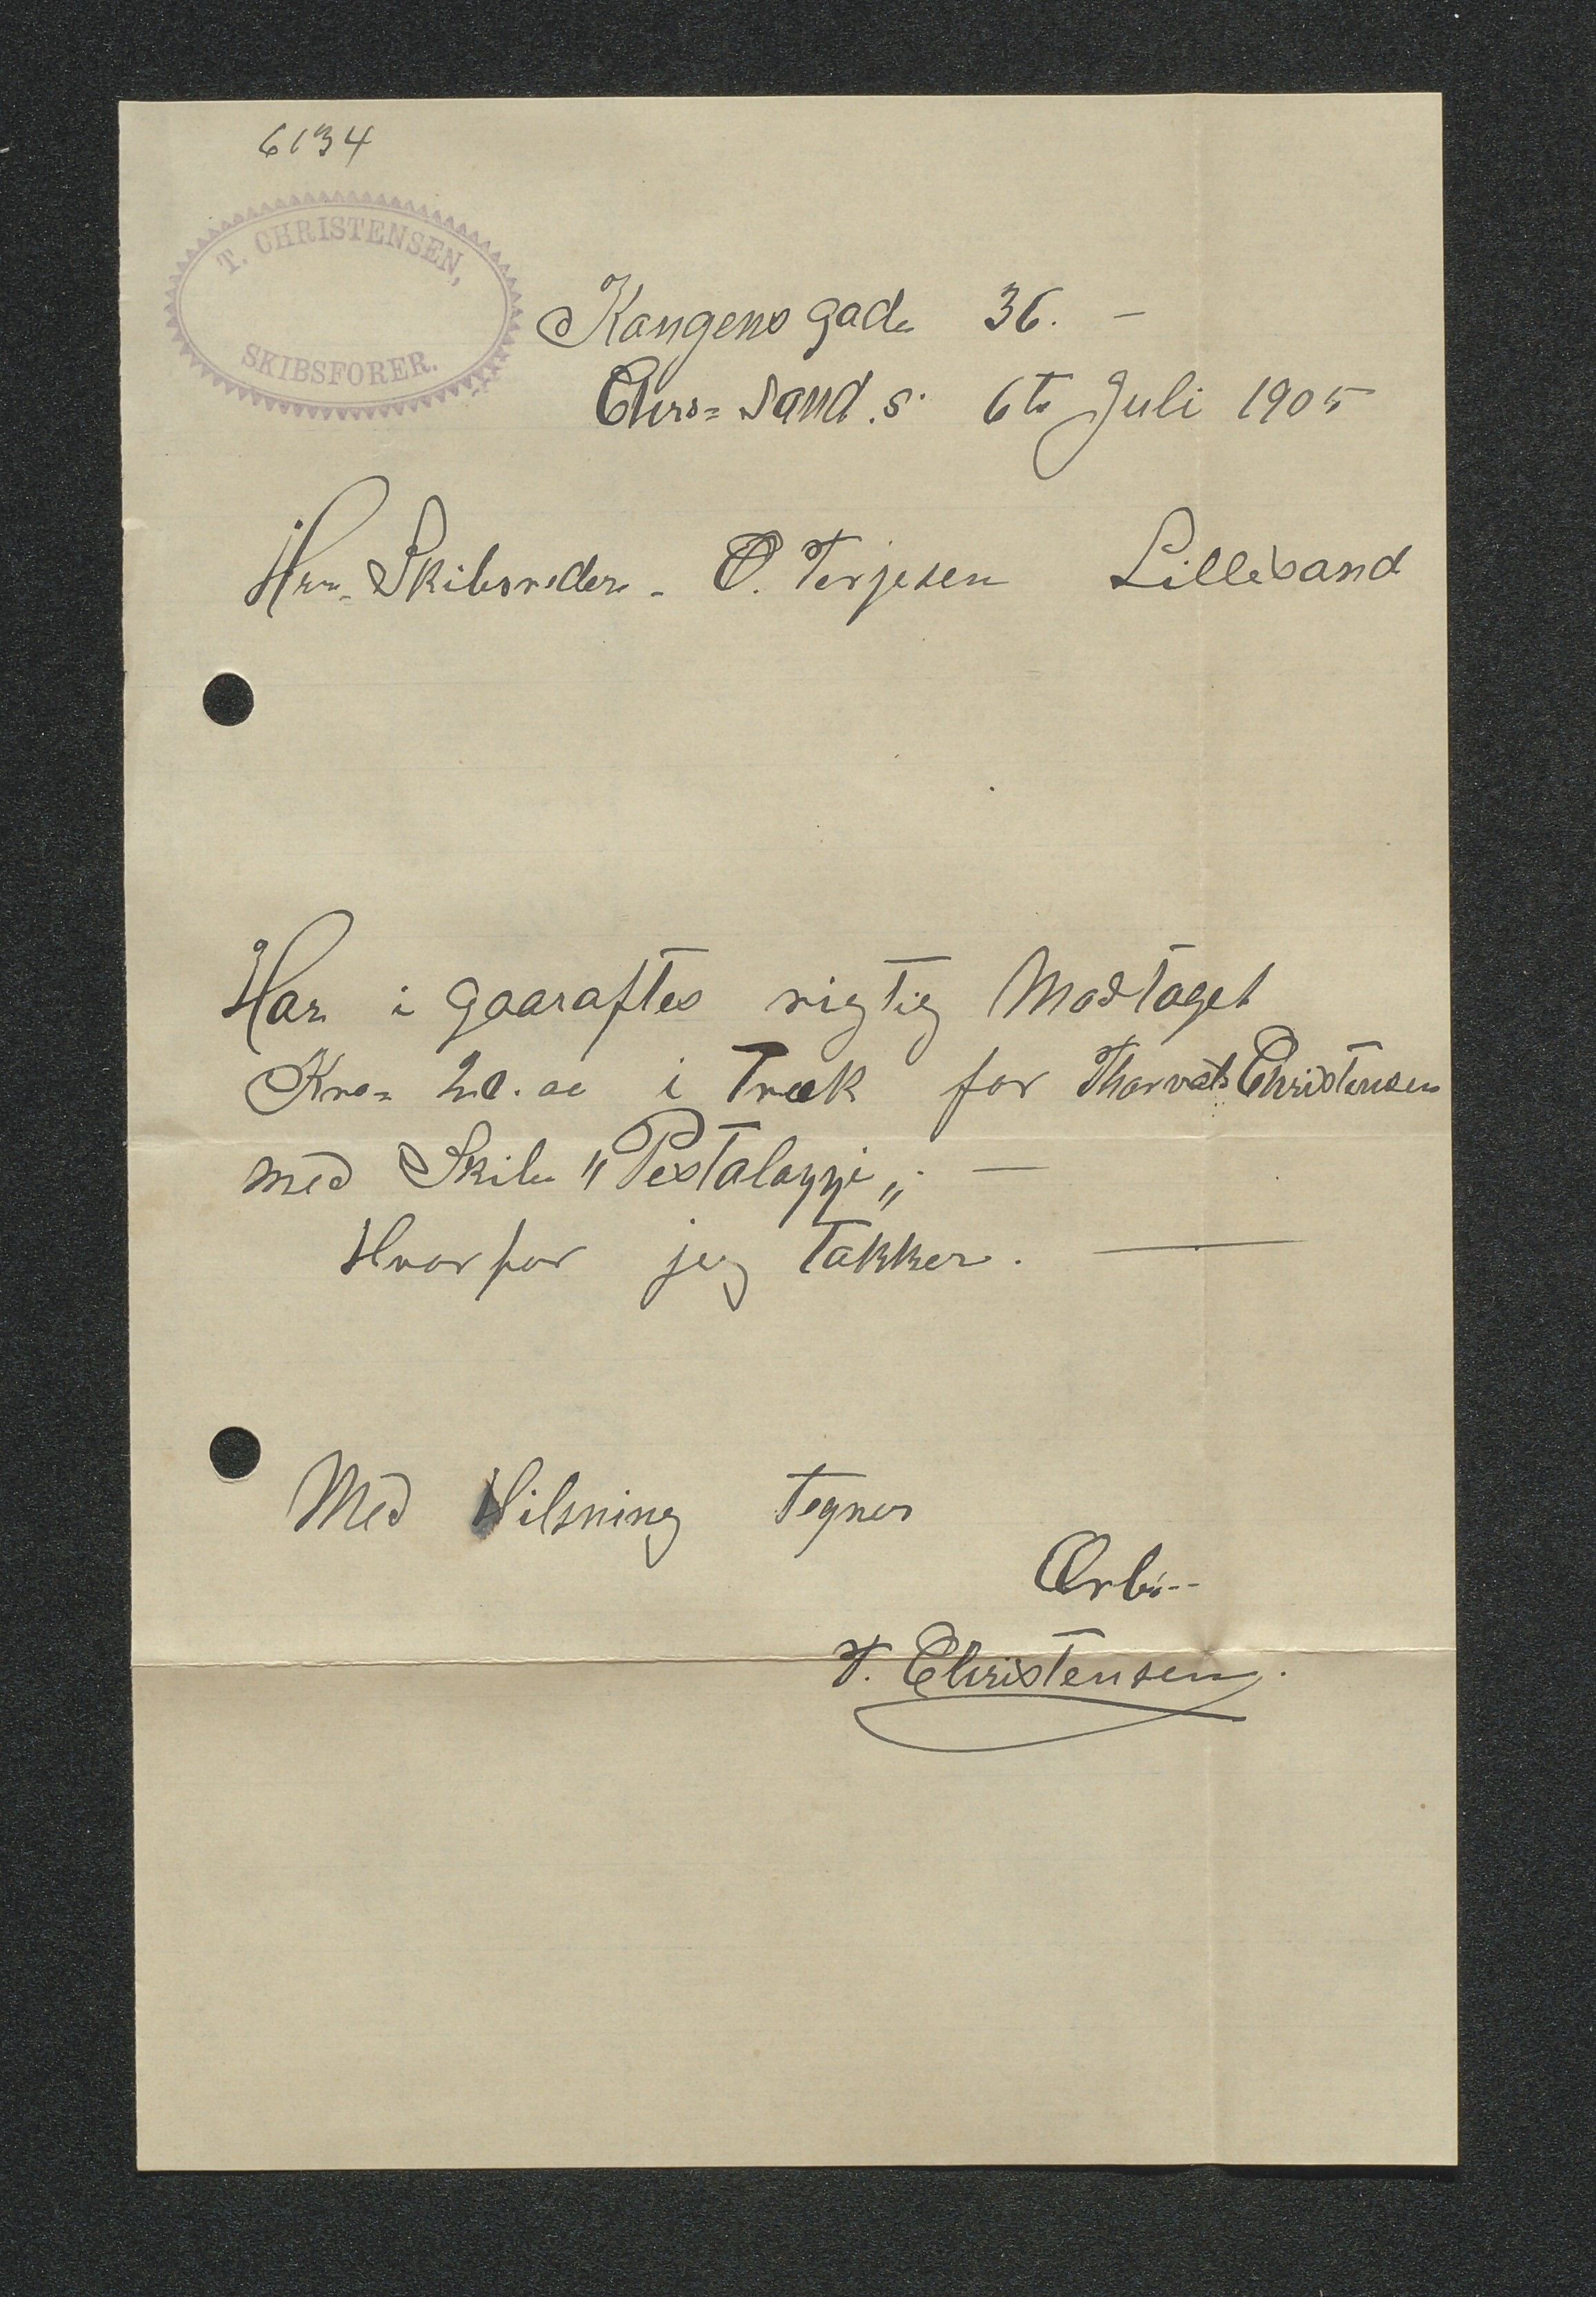 6134
T. CHRISTENSEN,
SKIBSFORER.
Kongens gade 36. -
Chrs= Sand. S. 6te Juli 1905
Herr Skibsreder - O. Terjesen Lillesand
Har i gaaraftes rigtig Modtaget
Kro= 20.00 i Træk for Thorvals Christensen
med Skib "Pestalozzi„. —
Hvorfor jeg Takker. —
Med Hilsning Tegner
Ærb--
T. Christensen.